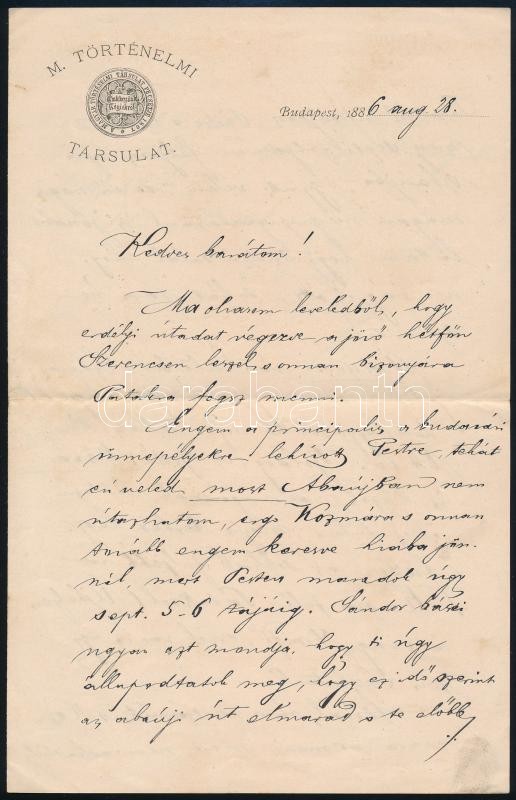 M. TÖRTÉNELMI
TÁRSULAT.
Budapest, 1886 aug 28.
Kedves barátom!
Ma olvasom leveledből, hogy
erdélyi útadat végezve a jövő hétfőn
Szerencsen leszel, s onnan bizonyára
Patakra fogsz menni.
Engem a principális a budavári
ünnepélyekre lehívott Pestre, tehát
én veled most Abaújban nem
útazhatom, ergo Kozmára s onnan
tovább engem keresve hiába jön-
nél, mert Pesten maradok úgy
sept. 5-6 tájáig. Sándor bácsi
ugyan azt mondja, hogy ti úgy
állapodtatok meg, hogy ez idő szerint
az abaúji út elmarad s te előbb
darabanth